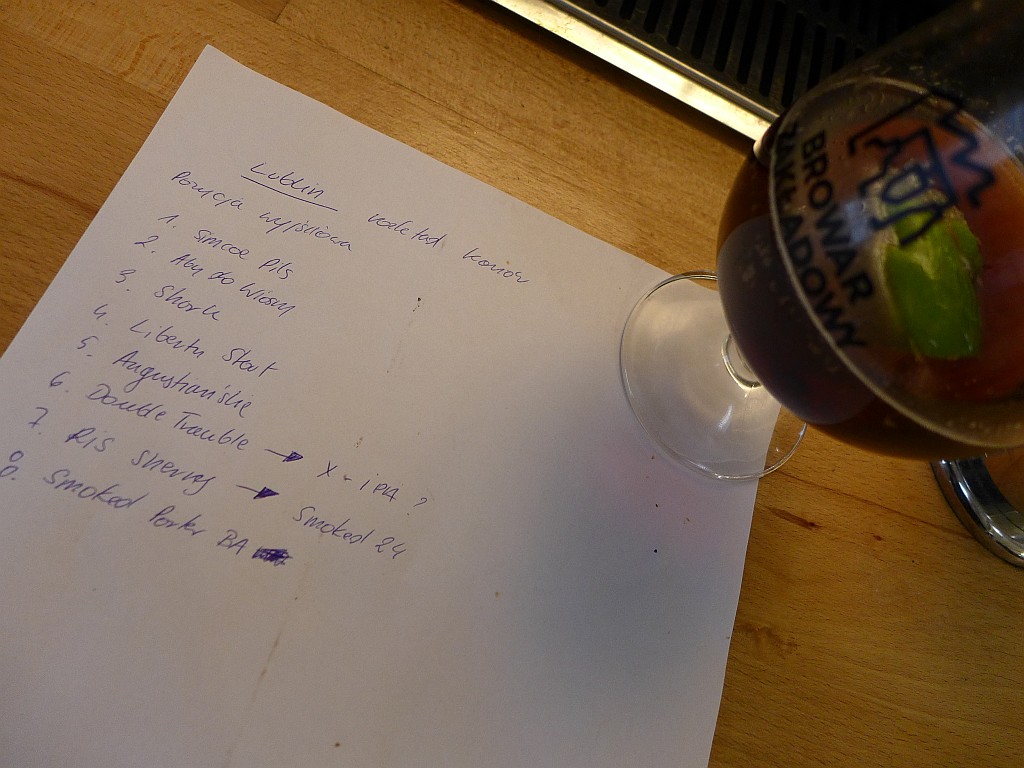 Lublin
Pozycja wyjściowa
1. Simcoe Pils
2. Aby do Wiosny
3. Shark
4. Liberty Stout
5. Augustiańskie
6. Double Trouble → X-iPA ?
7. RIS sherry → Smoked 24
8. Smoked Porter BA
BROWAR
ZAKŁADOWY